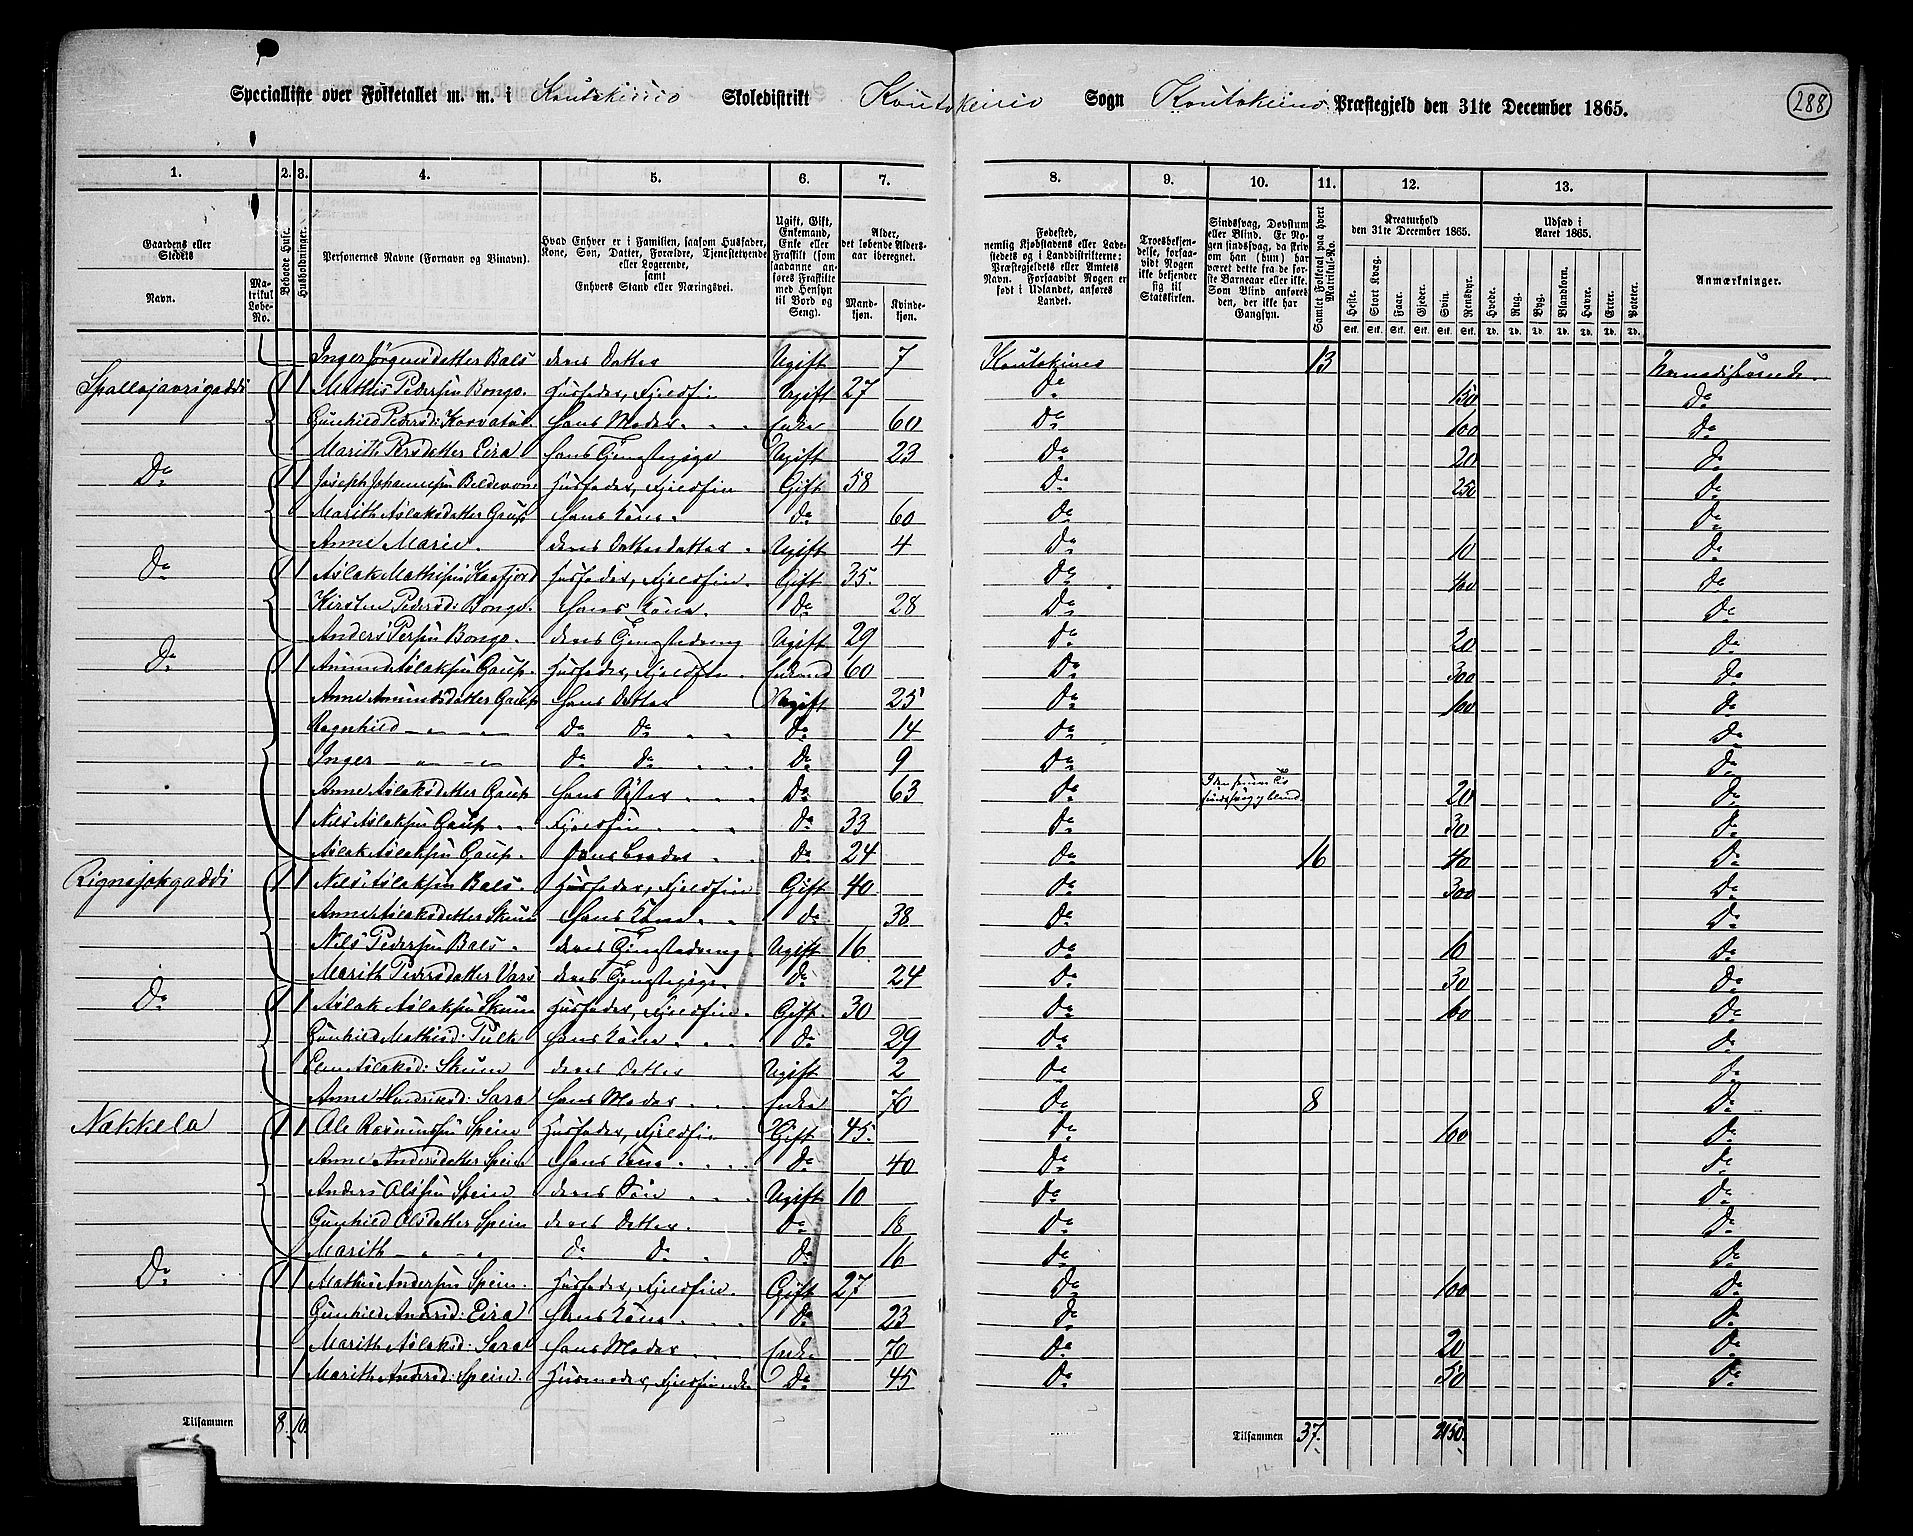 288
Specialliste over Folketallet m. m. i Koutokeino Skoledistrikt Koutokeino Sogn Koutokeino Præstegjeld den 31te December 1865.
1. 2. 3. 4. 5. 6. 7. 8. 9. 10. 11. 12. 13.
Gaardens eller Stedets Navn. Matrikul Løbe-No. Beboede Huse. Husholdninger. Personernes Navne (Fornavn og Tilnavn). Hvad Enhver er i Familien, saasom Husfader, Kone, Søn, Datter, Forældre, Tjenestetyende eller Logerende, samt Enhvers Stand eller Næringsvei. Ugift, Gift, Enkemand, Enke eller Fraskilt (som saadanne anføres Fraskilte med Hensyn til Bord og Seng). Alder, det løbende Alders-aar iberegnet. Mandkjøn. Kvindekjøn.
Fødested, nemlig Kjøbstadens eller Ladestedets og i Landdistrikterne: Præstegjeldets eller Amtets Navn. Forsaavidt Nogen er født i Udlandet, anføres Landet. Troesbekjendelse, forsaavidt Nogen ikke bekjender sig til Statskirken. Sindssvag, Døvstum eller Blind. Er Nogen sindssvag, da skrives om han (hun) har været dette fra de første Barneaar eller ikke. Som Blind anføres den, der ikke har Gangsyn. Samlet Folketal paa hvert Matrikul-No. Kreaturhold den 31te December 1865. Heste. Stort Kvæg. Faar. Gjeder. Svin. Rensdyr. Udsæd i Aaret 1865. Hvede. Rug. Byg. Blandkorn. Havre. Erter. Poteter. Anmærkninger.
Inger Jørgensdatter Bals deres Datter Ugift 7 Koutokeino 13 Nomadiserende.
Spallojavrigaddi 1 1 Mathis Pedersen Bongo. Husfader, Fjeldfin Ugift 27 Do 150 Do
Gunhild Pedersd: hans Moder Enke 60 Do 100 Do
Marith Persdatter Eira hans Tjenestepige Ugift 23 Do 20 Do
Do 1 1 Joseph Johannesen Husfader, Fjeldfin Gift 58 Do 250 Do
Marith Aslaksdatter Gaup hans Kone. Do 60 Do Do
Anne Marie. deres Datterdatter Ugift 4 Do 10 Do
Do 1 1 Aslak Mathisen Kaafjord Husfader, Fjeldfin. Gift 35. Do 400 Do
Kirsten Pedersd: Bongo. hans Kone. Do 28 Do Do
Anders Persen Bongo. deres Tjenestedreng Ugift 29 Do 20 Do
Do 1 1 Amund Aslaksen Gaup. Husfader, Fjeldfin. Enkemd 60 Do 300 Do
Anne Amundsdatter Gaup hans Datter Ugift 25 Do 100 Do
Ragnhild — „ — „ Do Do Do 14 Do Do
Inger — „ — „ Do Do Do 9 Do Do
Anne Aslaksdatter Gaup hans Søster Do 63 Do sindssvag blind 20 Do
1 Nils Aslaksen Gaup Fjeldfin Do 33 Do 30 Do
Aslak Aslaksen Gaup. hans Broder Do 24 Do 16 40 Do
Rignajokgaddi 1 1 Nils Aslaksen Bals. Husfader, Fjeldfin Gift 40 Do 300 Do
Anne Aslaksdatter Skum hans Kone Do 38 Do Do
Nils Pedersen Bals. deres Tjenestedreng Ugift 16 Do 10 Do
Marith Pedersdatter Vars deres Tjenestepige. Do 24 Do 30 Do
Do 1 1 Aslak Aslaksen Skum Husfader, Fjeldfin. Gift 30 Do 100 Do
Gunhild Mathisd: Tulk hans Kone Do 29 Do Do
Elen Aslaksd: Skum deres Datter Ugift 2 Do Do
Anne Hendriksd: Sara hans Moder Enke 70 Do 8 Do
Nækkela 1 1 Ole Rasmussen Spein Husfader, Fjeldfin Gift 45. Do 100 Do
Anne Andersdatter Spein hans Kone Do 40 Do Do
Anders Olssen Spein deres Søn Ugift 10 Do Do
Gunhild Olsdatter Spein deres Datter. Do 18 Do Do
Marith — „ — „ Do Do Do 16 Do Do
Do 1 1 Mathis Andersen Spein. Husfader, Fjeldfin. Gift 27 Do 100 Do
Gunhild Andersd: Eira hans Kone Do 23 Do Do
Marith Aslaksd: Sara hans Moder Enke 70 Do 20 Do
1 Marith Andersd: Spein. Husmoder, Fjeldfinde Do 45 Do 50 Do
Tilsammen 8. 10. Tilsammen 37. 2150.